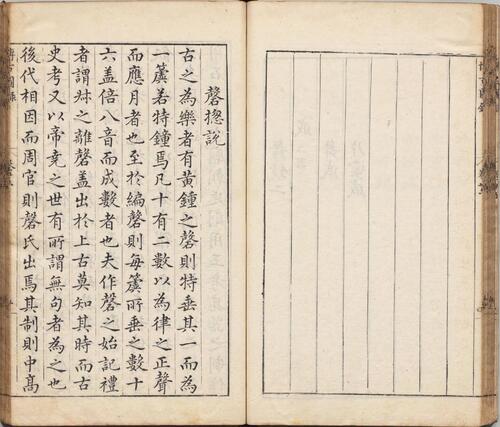 磬揔說
古之為樂者有黃鐘之磬則特垂其一而為
一簴若特鐘焉凡十有二數以為律之正聲
而應月者也至於編磬則每簴所垂之數十
六盖倍八音而成數者也夫作磬之始記禮
者謂叔之離磬盖出於上古莫知其時而古
史考又以帝堯之世有所謂無句者為之也
後代相因而周官則磬氏出焉其制則中高